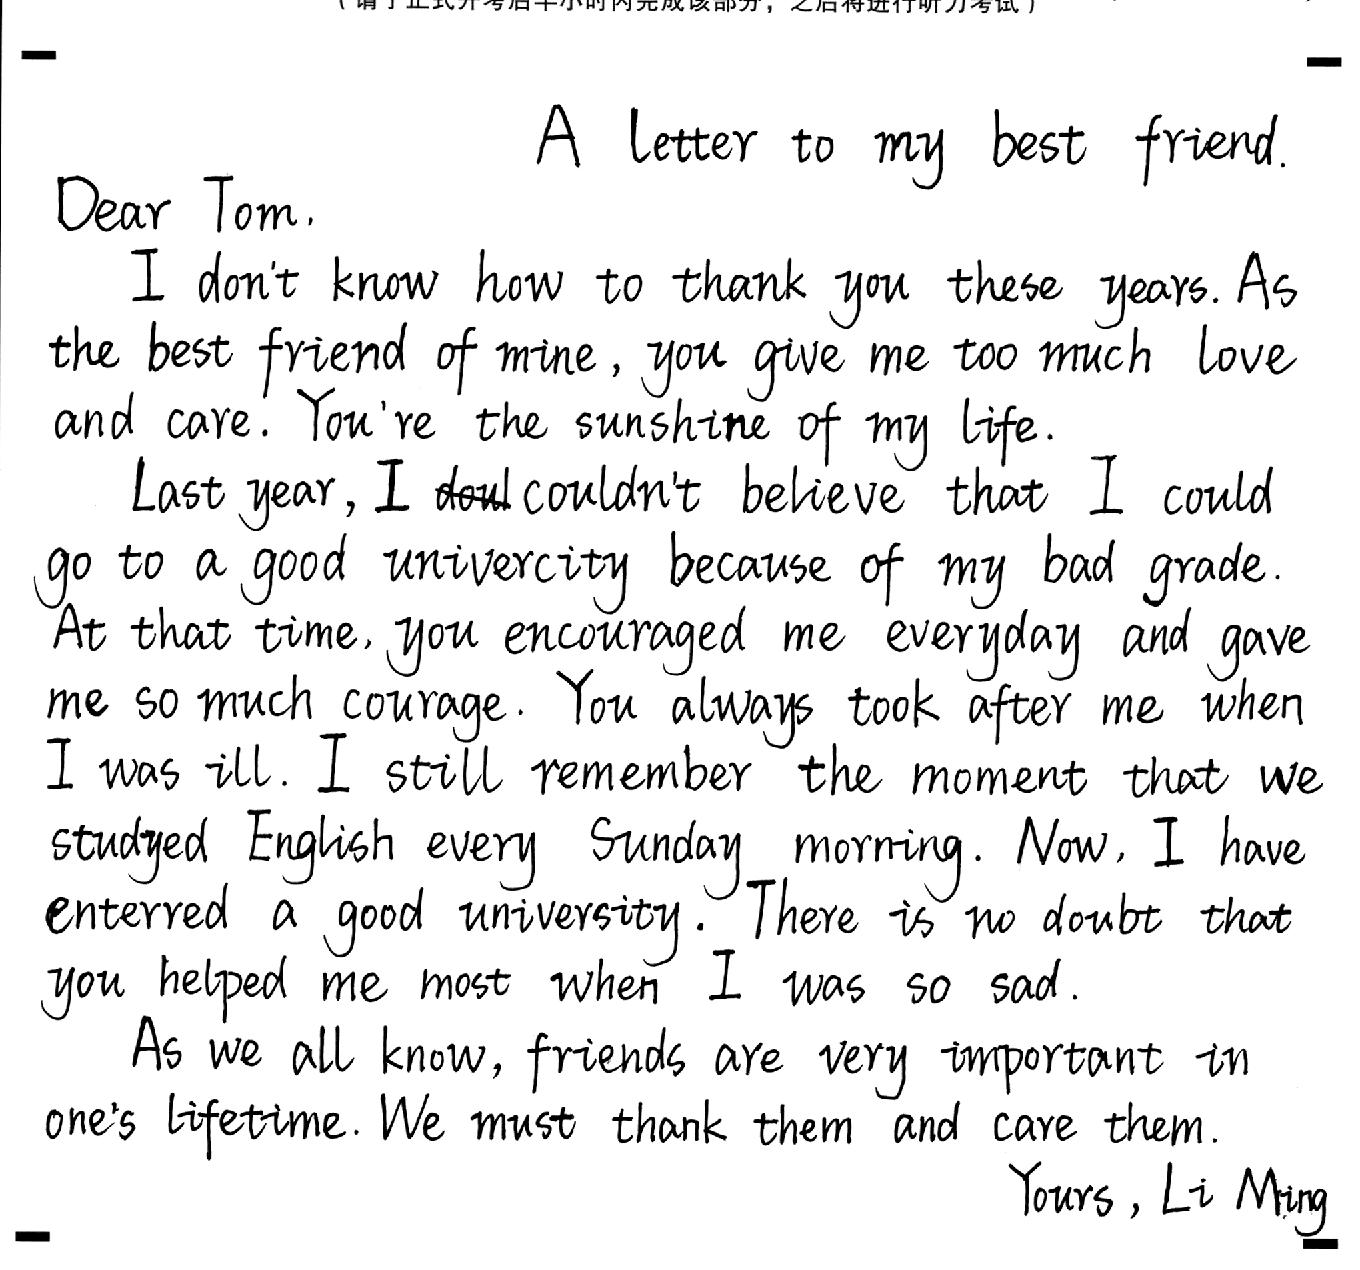 (请于正式开考后半小时内完成该部分，之后将进行听力考试)
A letter to my best friend.
Dear Tom.
I don't know how to thank you these years. As
the best friend of mine, you give me too much love
and care. You're the sunshine of my life.
Last year, I doul couldn't believe that I could
go to a good univercity because of my bad grade.
At that time, you encouraged me everyday and gave
me so much courage. You always took after me when
I was ill. I still remember the moment that we
studyed English every Sunday morning. Now, I have
enterred a good university. There is no doubt that
you helped me most when I was so sad.
As we all know, friends are very important in
one's lifetime. We must thank them and care them.
Yours, Li Ming